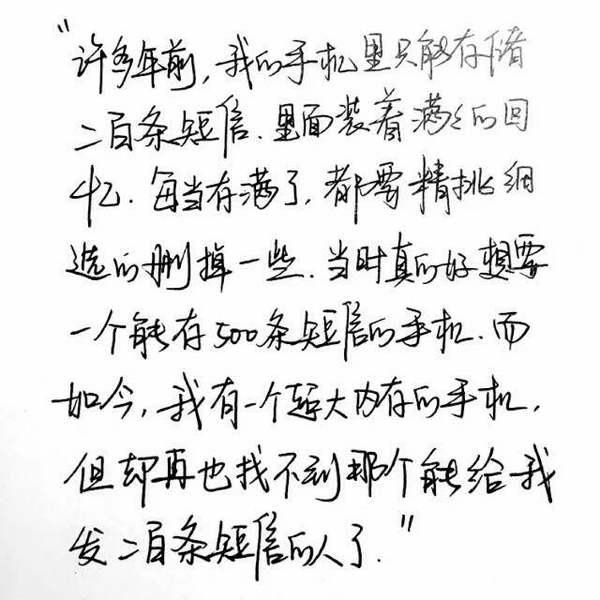 “许多年前，我的手机里只能存储
二百条短信．里面装着满满的回
忆．每当存满了．都要精挑细
选的删掉一些．当时真的好想要
一个能存500条短信的手机．而
如今，我有一个超大内存的手机，
但却再也找不到那个能给我
发二百条短信的人了．”